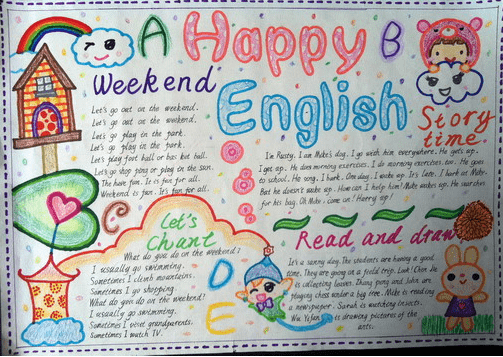 A Happy B
English
Weekend
Let's go out on the weekend.
Let's go out on the weekend.
Let's go play in the park.
Let's go play in the park.
Let's play foot ball or bas ket ball.
Let's go stop ping or play in the sun.
The have fun. It is fun for all.
Weekend is fun. It's fun for all.
C
Story
time.
I'm Rusty. I am Mike's dog. I go with him everywhere. He gets up.
I get up. He does morning exercises. I do morning exercises, too. He goes
to school. He sing. I bark. One day, I wake up. It's late. I bark at Mike.
But he doesn't wake up. How can I help him! Mike wakes up. He searches
for his bag. Oh Mike, come on! Hurry up!
Let's
Chant
What do you do on the weekend?
I usually go swimming.
Sometimes I climb mountains.
Sometimes I go shopping.
What do you do on the weekend?
I usually go swimming.
Sometimes I visit grandparents.
Sometimes I watch TV.
D
E
Read and draw
It's a sunny day. The students are having a good
time. They are on a field trip. Look! Chen Jie
is collecting leaves. Zhang Peng and John are
playing chess under a big tree. Mike is reading
a newspaper. Sarah is watching insects.
Wu Yifan is drawing pictures of the
ants.